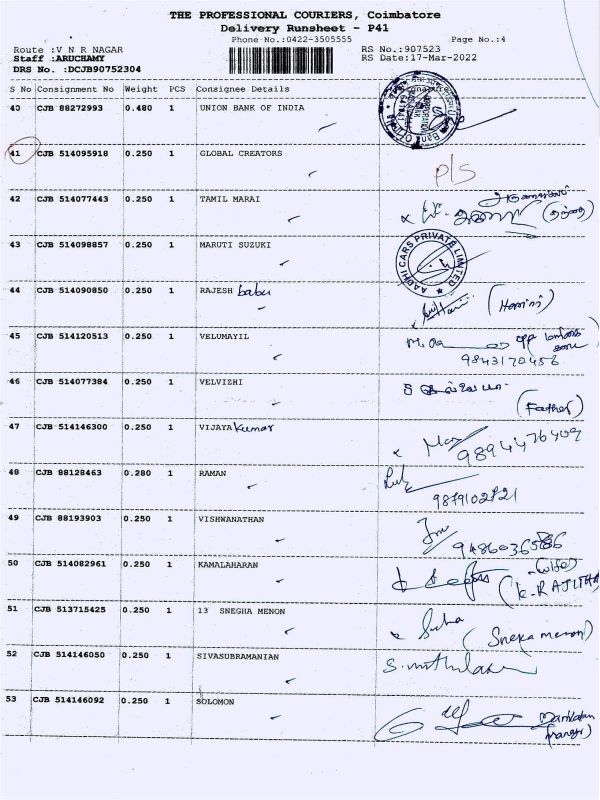 THE PROFESSIONAL COURIERS, Coimbatore
Delivery Runsheet - P41
Phone No.:0422-3505555
Page No.:4
Route :V N R NAGAR
RS No.:907523
Staff :ARUCHAMY
RS Date:17-Mar-2022
DRS No. :DCJB90752304
S No Consignment No Weight PCS Consignee Details Signature
40 CJB 88272993 0.480 1 UNION BANK OF INDIA
41 CJB 514095918 0.250 1 GLOBAL CREATORS P/S
42 CJB 514077443 0.250 1 TAMIL MARAI
(தந்தை)
43 CJB 514098857 0.250 1 MARUTI SUZUKI AADHI CARS PRIVATE LIMITED
44 CJB 514090850 0.250 1 RAJESH babu
45 CJB 514120513 0.250 1 VELUMAYIL
9843170456
46 CJB 514077384 0.250 1 VELVIZHI
(Father)
47 CJB 514146300 0.250 1 VIJAYA Kumar
9894476409
48 CJB 88128463 0.280 1 RAMAN
9879102721
49 CJB 88193903 0.250 1 VISHWANATHAN
50 CJB 514082961 0.250 1 KAMALAHARAN (wife)
(K. RAJITHA)
51 CJB 513715425 0.250 1 13 SNEGHA MENON Sneha
(Sneka menon)
52 CJB 514146050 0.250 1 SIVASUBRAMANIAN
53 CJB 514146092 0.250 1 SOLOMON